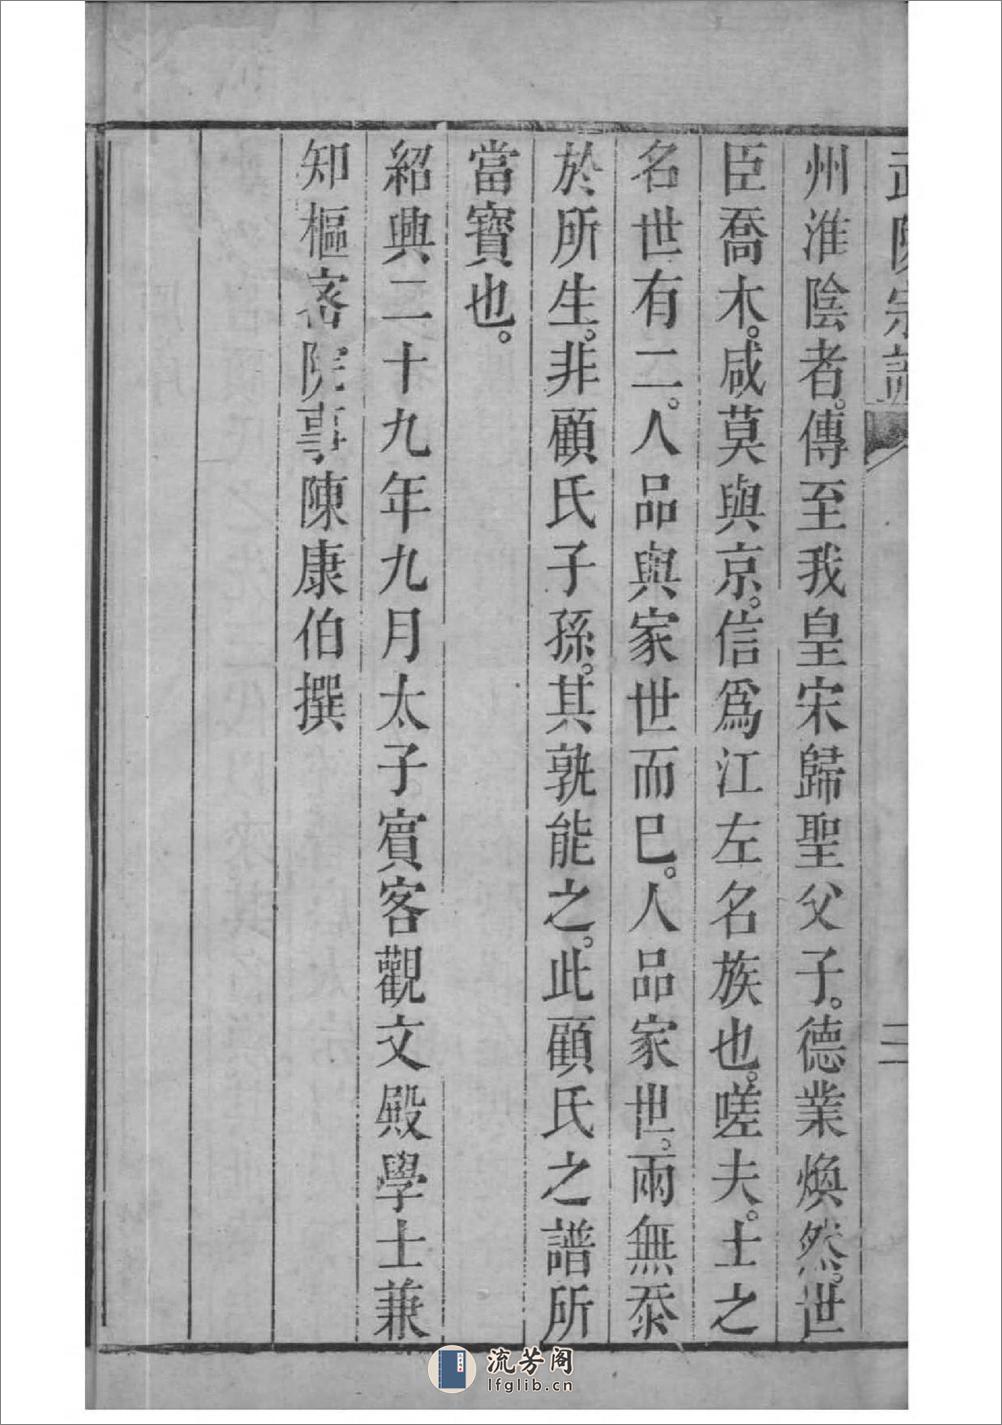 武陵宗譜
三
州淮陰者。傳至我皇宋歸聖父子。德業煥然。世
臣喬木。咸莫與京。信爲江左名族也。嗟夫。士之
名世有二。人品與家世而已。人品家世。兩無忝
於所生。非顧氏子孫。其孰能之。此顧氏之譜所
當寶也。
紹興二十九年九月太子賓客觀文殿學士兼
知樞密院事陳康伯撰
流芳阁
lfglib.cn